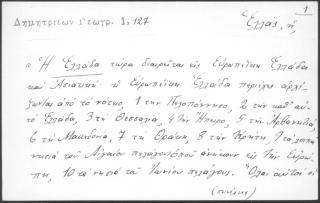 Δημητριέων Γεωγρ. 1, 127
Ἑλλάς, ἡ
1
"Ἡ Ἑλλάδα τώρα διαιρεῖται εἰς Εὐρωπαϊκὴ Ἑλλάδα
καὶ Ἀσιατική· ἡ Εὐρωπαϊκὴ Ἑλλάδα περιέχει ἀρχι-
ἀπὸ τὸ νότο, 1 τὴν Πελοπόννησο, 2 τὴν καθ' αυτ
τὸ Ἑλλάδα, 3 τὴ Θεσσαλία, 4 τὴν Ἤπειρο, 5 τὴν Ἀρβανιτιά,
6 τὴ Μακεδονία, 7 τὴ Θράκη, 8 τὴν Κρήτη, 9 τὰ λοιπὰ
νησιὰ τοῦ Αἰγαίου πελάγους ὁποὺ ἀνήκουν εἰς τὴν Εὐρώ-
πη, 10 τὰ νησιὰ τοῦ Ἰονίου πελάγους. Ὅλοι αὐτοὶ οἱ
(συνέχεια)